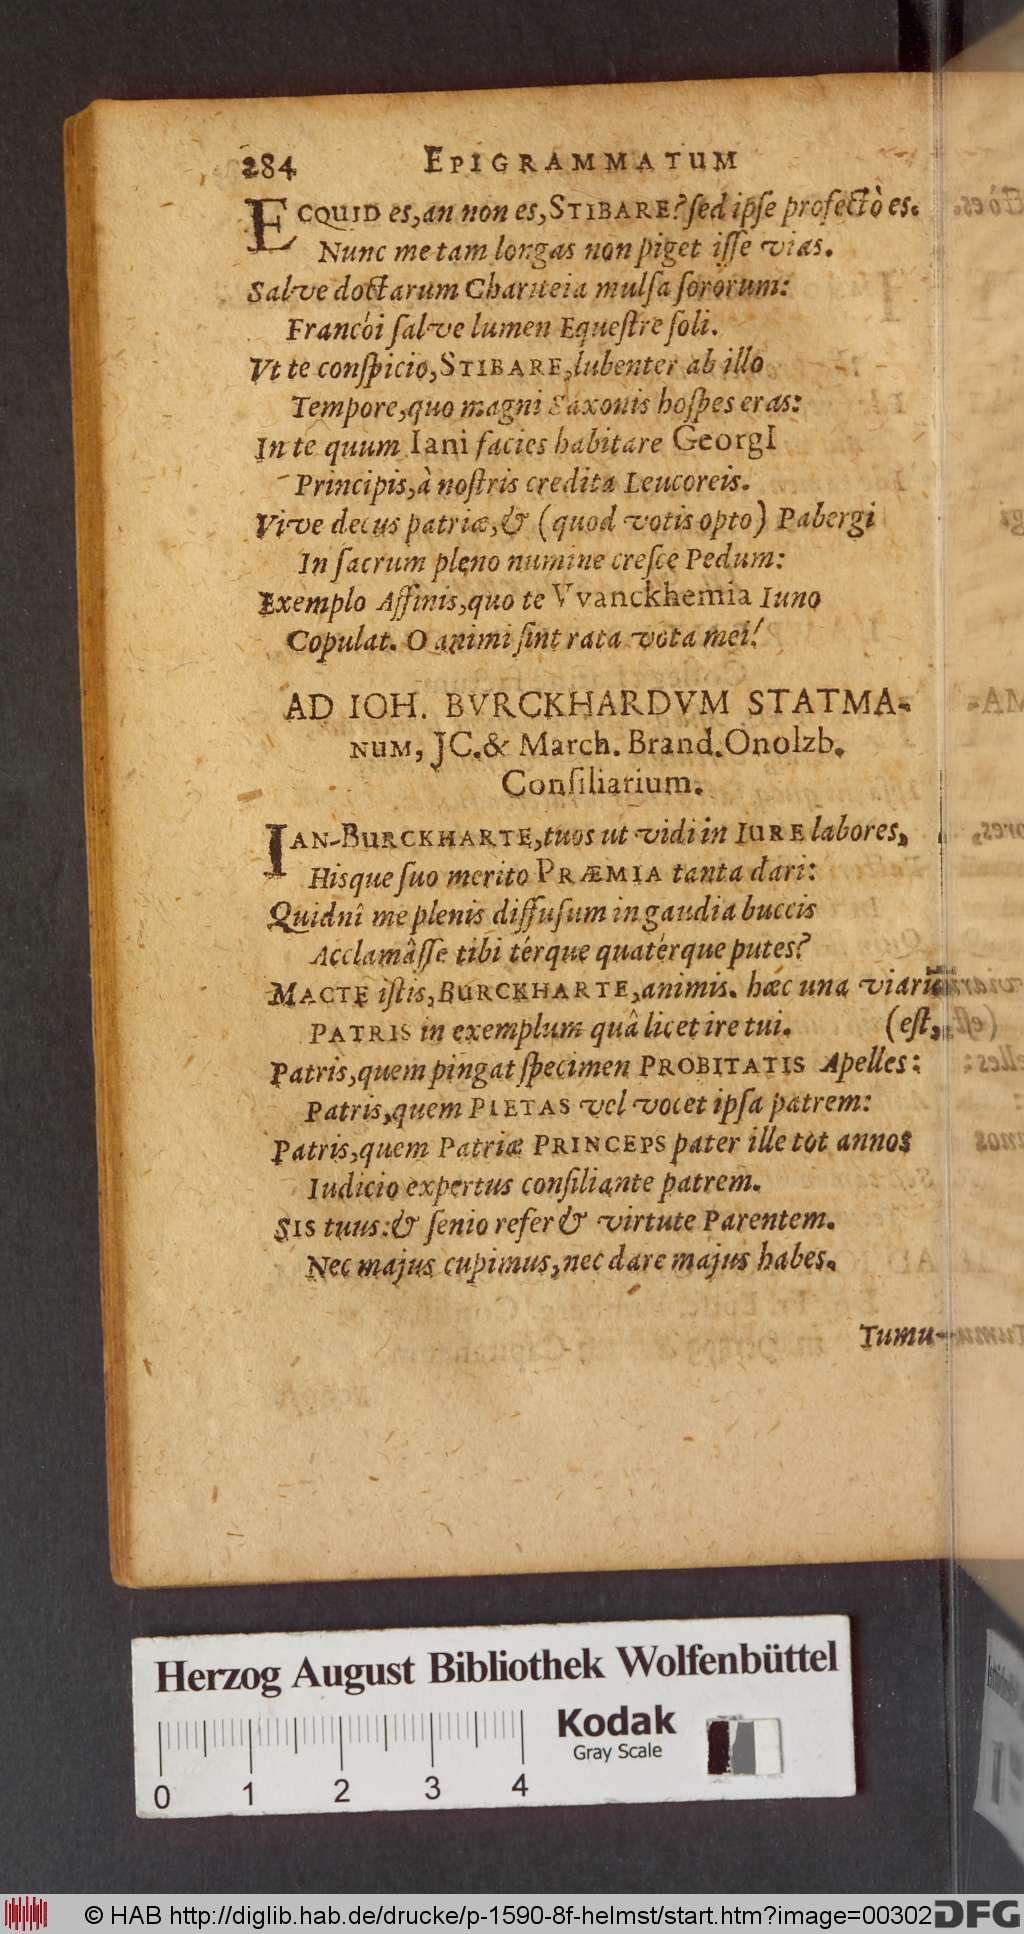 284 EPIGRAMMATUM
ECQUID es, an non es, STIBARE? ſed ipſe profectò es.
Nunc me tam longas non piget iſſe vias.
Salve doctarum Chariteia mulſa ſororum:
Francói ſalve lumen Equeſtre ſoli.
Vt te conſpicio, STIBARE, lubenter ab illo
Tempore, quo magni Saxonis hoſpes eras:
In te quum Iani facies habitare GeorgI
Principis, à noſtris credita Leucoreis.
Vive decus patriæ, & (quod votis opto) Pabergi
In ſacrum pleno numine creſce Pedum:
Exemplo Affinis, quo te Vvanckhemia Iuno
Copulat. O animi ſint rata vota mei!
AD IOH. BVRCKHARDVM STATMA-
NUM, JC. & March. Brand. Onolzb.
Conſiliarium.
IAN-BURCKHARTE, tuos ut vidi in IURE labores,
Hisque ſuo merito PRÆMIA tanta dari:
Quidnî me plenis diffuſum in gaudia buccis
Acclamâſſe tibi térque quatérque putes?
MACTE iſtis, BURCKHARTE, animis. hæc una viarũ
PATRIS in exemplum quâ licet ire tui. (eſt,
Patris, quem pingat ſpecimen PROBITATIS Apelles:
Patris, quem PIETAS vel vocet ipſa patrem:
Patris, quem Patriæ PRINCEPS pater ille tot annos
Iudicio expertus conſiliante patrem.
SIS tuus: & ſenio refer & virtute Parentem.
Nec majus cupimus, nec dare majus habes.
Tumu-
Herzog August Bibliothek Wolfenbüttel
Kodak
Gray Scale
0 1 2 3 4
© HAB http://diglib.hab.de/drucke/p-1590-8f-helmst/start.htm?image=00302
DFG